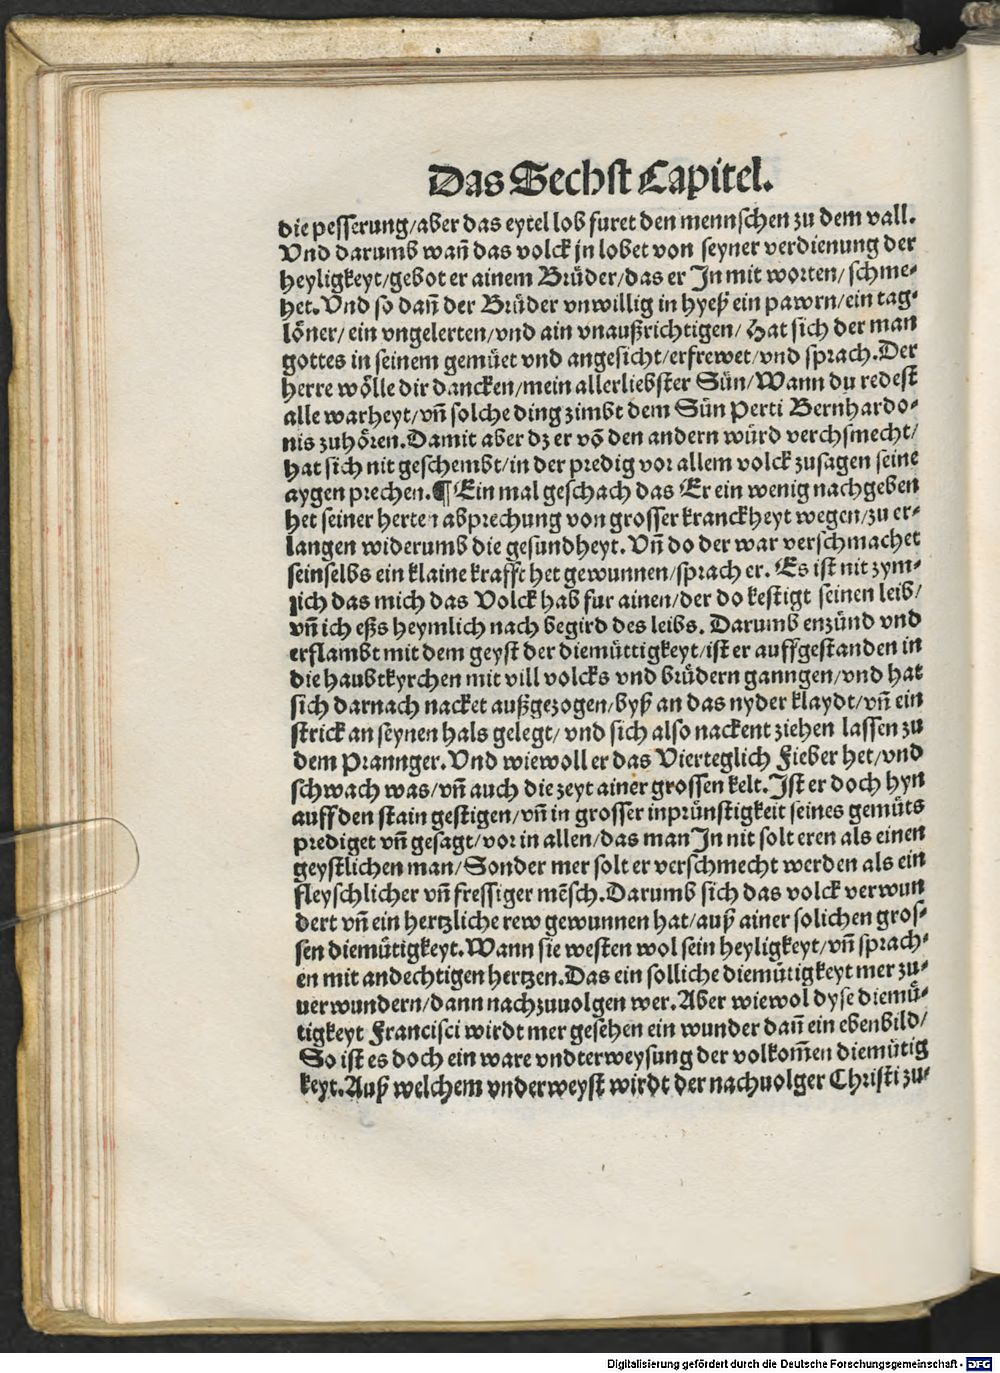 Das Sechst Capitel.
die pesserung/aber das eytel lob furet den mennschen zu dem vall.
Vnd darumb wañ das volck jn lobet von seyner verdienung der
heyligkeyt/gebot er ainem Brüder/das er Jn mit worten/schme⸗
het. Vnd so dañ der Brüder vnwillig in hyeß ein pawrn/ein tag⸗
löner/ein vngelerten/vnd ain vnaußrichtigen/Hat sich der man
gottes in seinem gemüet vnd angesicht/erfrewet/vnd sprach. Der
herre wölle dir dancken/mein allerliebster Sün/Wann du redest
alle warheyt/vñ solche ding zimbt dem Sün Perti Bernhardo⸗
nis zuhören. Damit aber dz er võ den andern würd verchsmecht/
hat sich nit geschembt/in der predig vor allem volck zusagen seine
aygen prechen. ¶ Ein mal geschach das Er ein wenig nachgeben
het seiner herten abprechung von grosser kranckheyt wegen/zu er⸗
langen widerumb die gesundheyt. Vñ do der war verschmachet
seinselbs ein klaine krafft het gewunnen/sprach er. Es ist nit zym⸗
lich das mich das Volck hab fur ainen/der do kestigt seinen leib/
vñ ich eßs heymlich nach begird des leibs. Darumb enzünd vnd
erflambt mit dem geyst der diemüttigkeyt/ist er auffgestanden in
die haubtkyrchen mit vill volcks vnd brüdern ganngen/vnd hat
sich darnach nacket außgezogen/byß an das nyder klaydt/vñ ein
strick an seynen hals gelegt/vnd sich also nackent ziehen lassen zu
dem Prannger. Vnd wiewoll er das Vierteglich Fieber het/vnd
schwach was/vñ auch die zeyt ainer grossen kelt. Jst er doch hyn
auff den stain gestigen/vñ in grosser inprünstigkeit seines gemüts
prediget vñ gesagt/vor in allen/das man Jn nit solt eren als einen
geystlichen man/Sonder mer solt er verschmecht werden als ein
fleyschlicher vñ fressiger mẽsch. Darumb sich das volck verwun
dert vñ ein hertzliche rew gewunnen hat/auß ainer solichen gros⸗
sen diemütigkeyt. Wann sie westen wol sein heyligkeyt/vñ sprach⸗
en mit andechtigen hertzen. Das ein solliche diemütigkeyt mer zu⸗
uerwundern/dann nachzuuolgen wer. Aber wiewol dyse diemü⸗
tigkeyt Francisci wirdt mer gesehen ein wunder dañ ein ebenbild/
So ist es doch ein ware vndterweysung der volkom̃en diemütig
keyt. Auß welchem vnderweyst wirdt der nachuolger Christi zu⸗
Digitalisierung gefördert durch die Deutsche Forschungsgemeinschaft - DFG